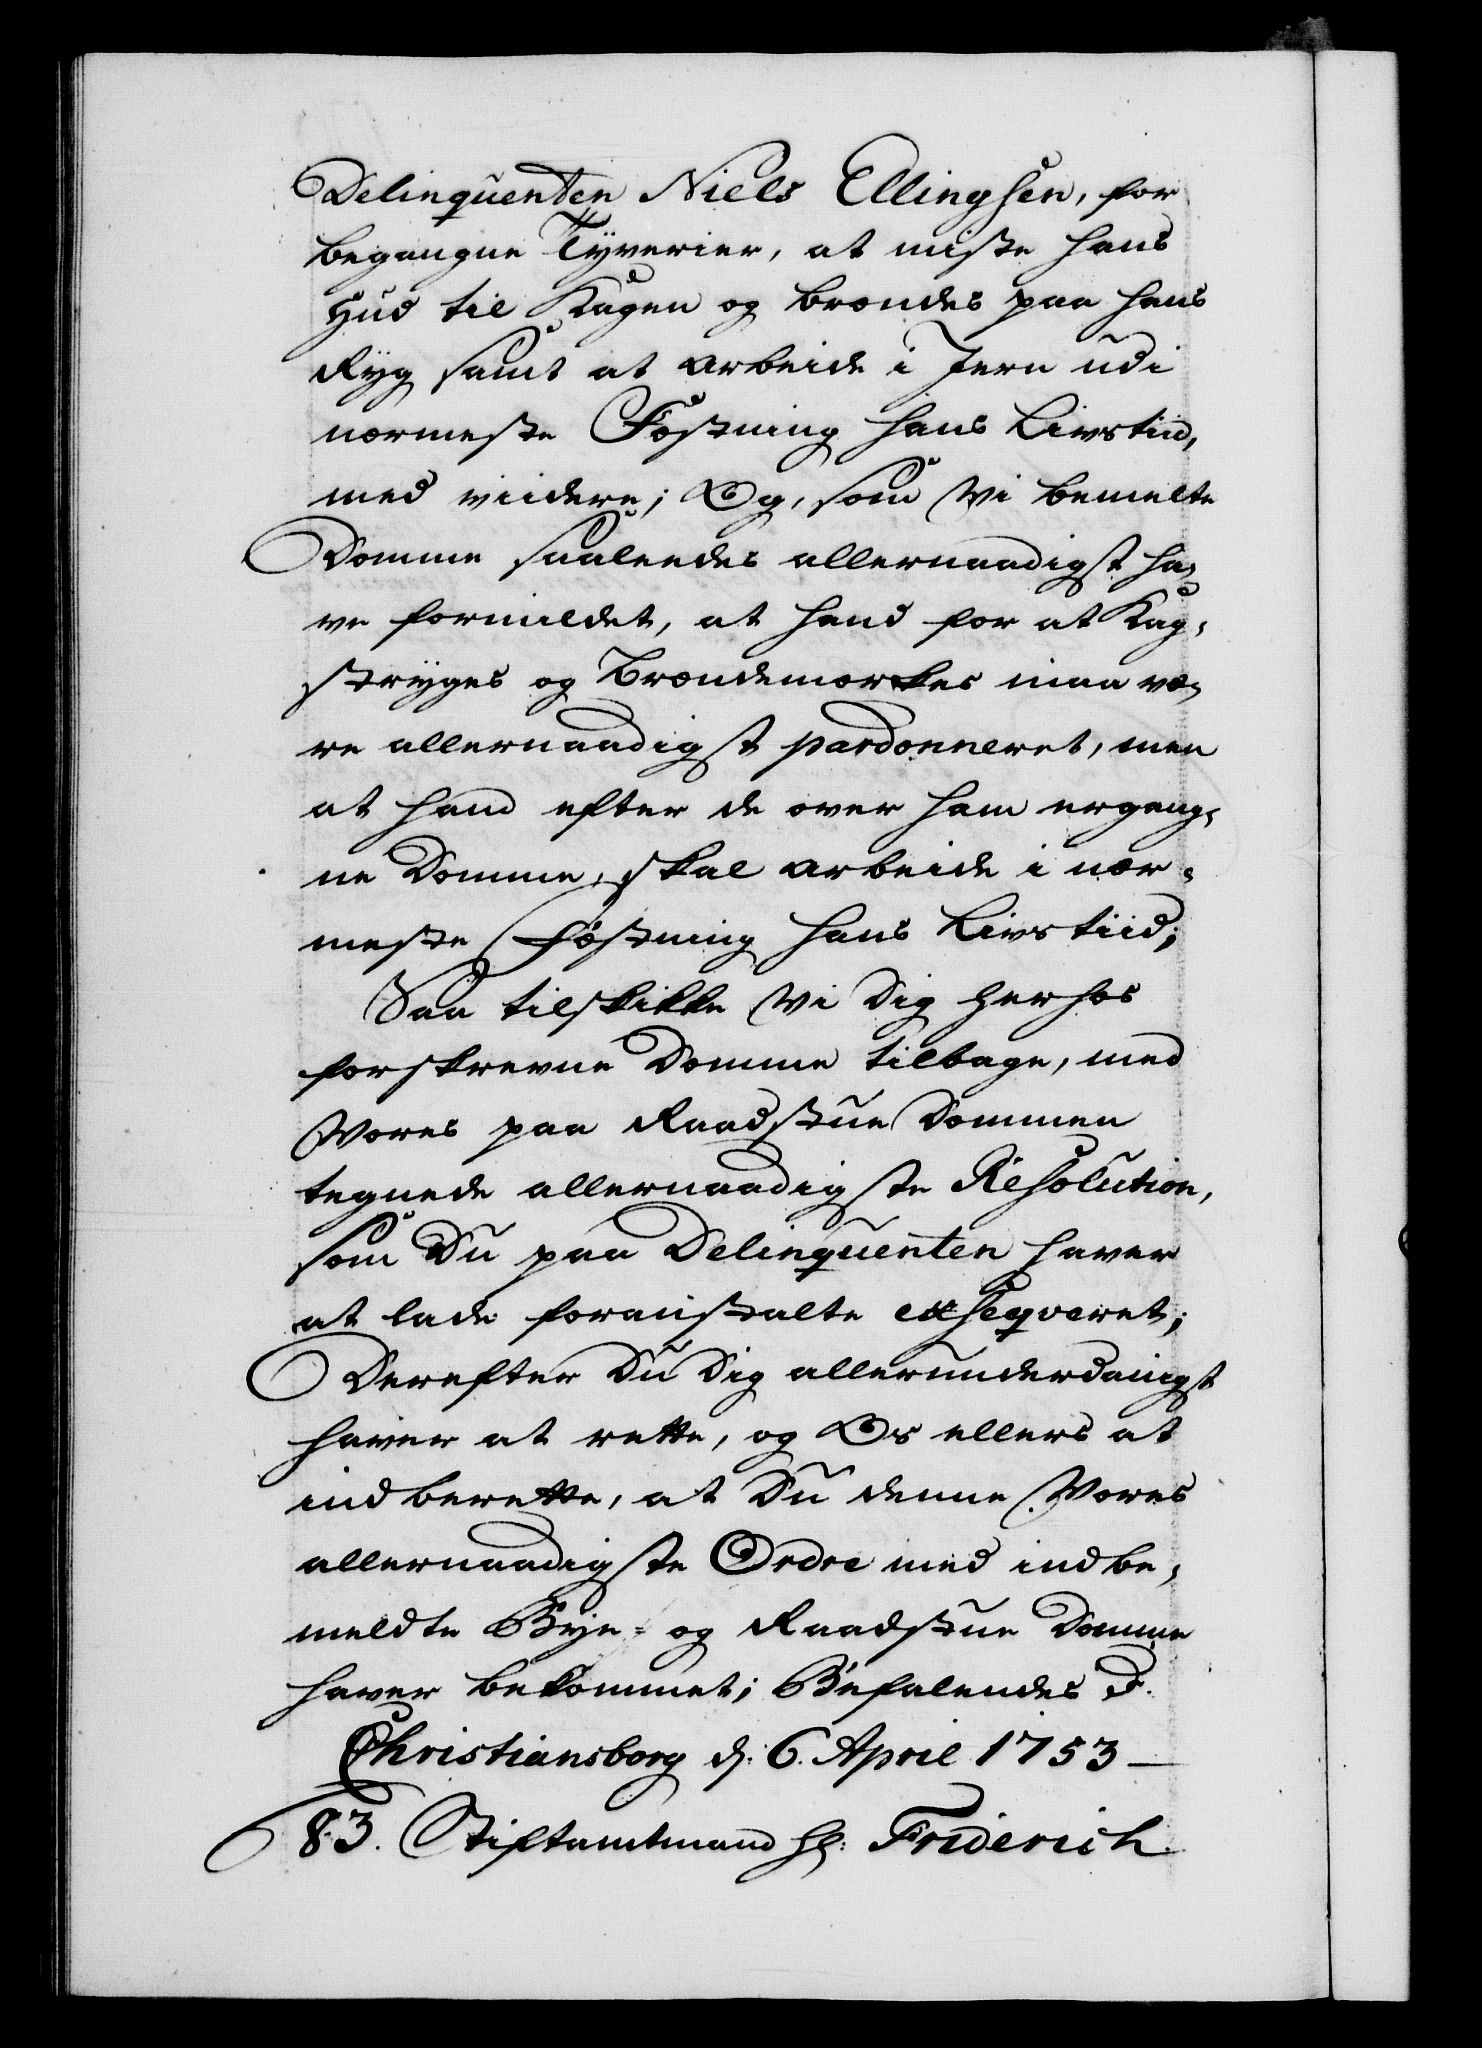 Delinquenten Niels Ellingsen, for
begangne Tyverier, at miste hans
Hud til Kagen og brændes paa hans
Ryg samt at arbeide i Jern udi
nærmeste Fæstning hans Livstiid,
med viidere; Og, som Wi bemelte
Domme saaleedes allernaadigst ha-
ve formildet, at hand for at Kag-
stryges og Brændemærkes maa væ-
re allernaadigst pardonneret, men
at hand efter de over ham ergang-
ne Domme, skal arbeide i nær-
meste Fæstning hans Livstiid;
Saa tilskikke Wi dig herhos
forskrevne Domme tilbage, med
Wores paa Raadstue Dommen
tegnede allernaadigste Resolution,
som Du paa Delinquenten haver
at lade foranstalte exseqveret;
Derefter Du dig allerunderdanigst
haver at rette, og Os ellers at
indberette, at Du denne Wores
allernaadigste Ordre med indbe-
meldte Bye- og Raadstue Domme
haver bekommet; Befalendes d.
Christiansborg d: 6. April 1753 —
83. Stiftamtmand Hr: Friderich